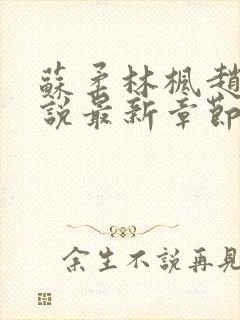 蘇柔林楓趙
說最新章節
余生不說再見